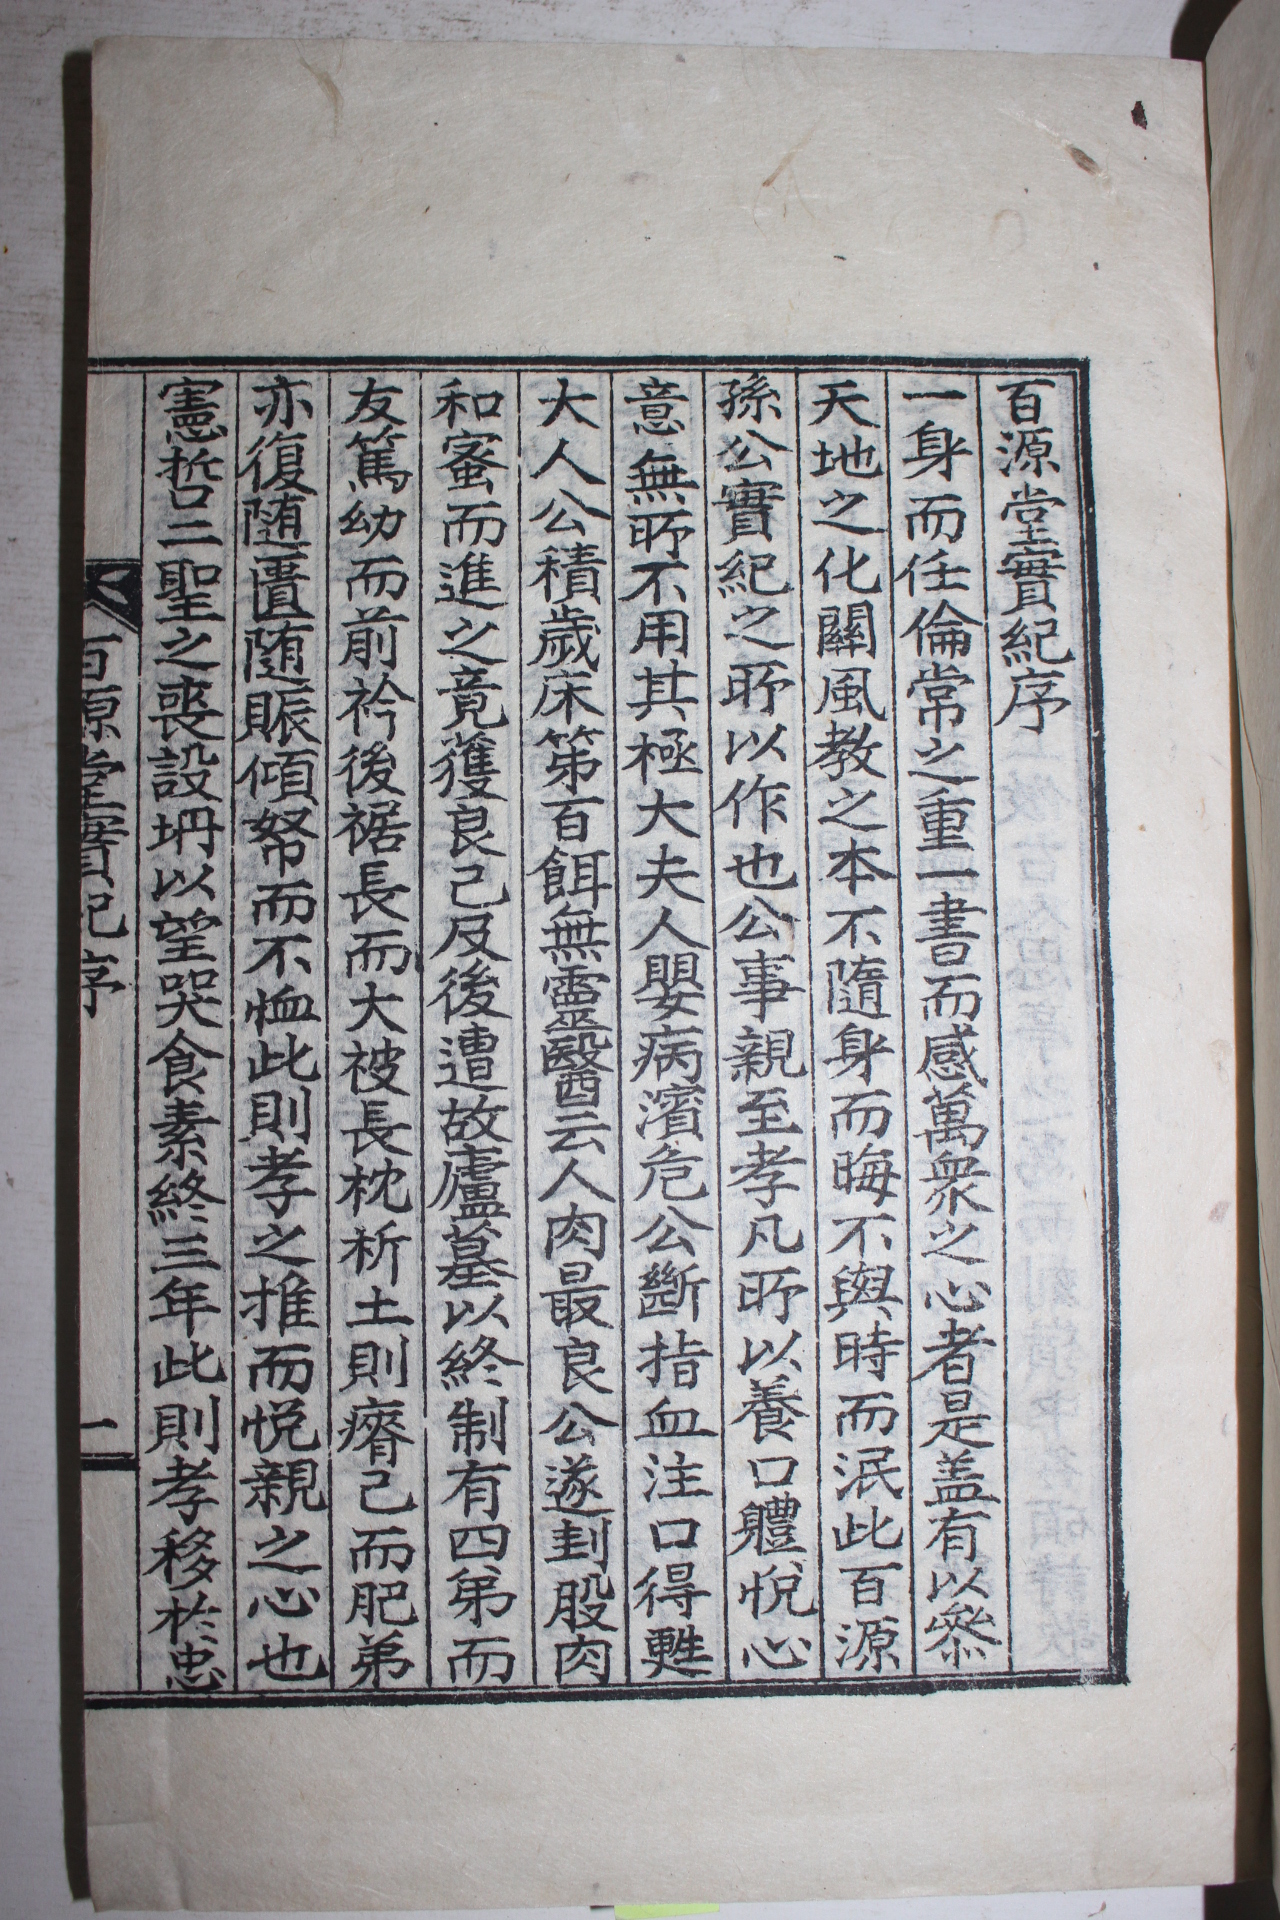 百源堂實紀序
一身而任倫常之重一書而感萬衆之心者是盖有以叅
天地之化關風教之本不隨身而晦不與時而泯此百源
孫公實紀之所以作也公事親至孝凡所以養口體悅心
意無所不用其極大夫人嬰病濱危公斷指血注口得甦
大人公積歲床第百餌無靈醫云人肉最良公遂刲股肉
和蜜而進之竟獲良已及後遭故廬墓以終制有四弟而
友篤幼而前衿後裾長而大被長枕析土則瘠己而肥弟
亦復随匱随賑傾帑而不恤此則孝之推而悦親之心也
憲哲二聖之喪設坍以望哭食素終三年此則孝移於忠
百源堂實紀序
一